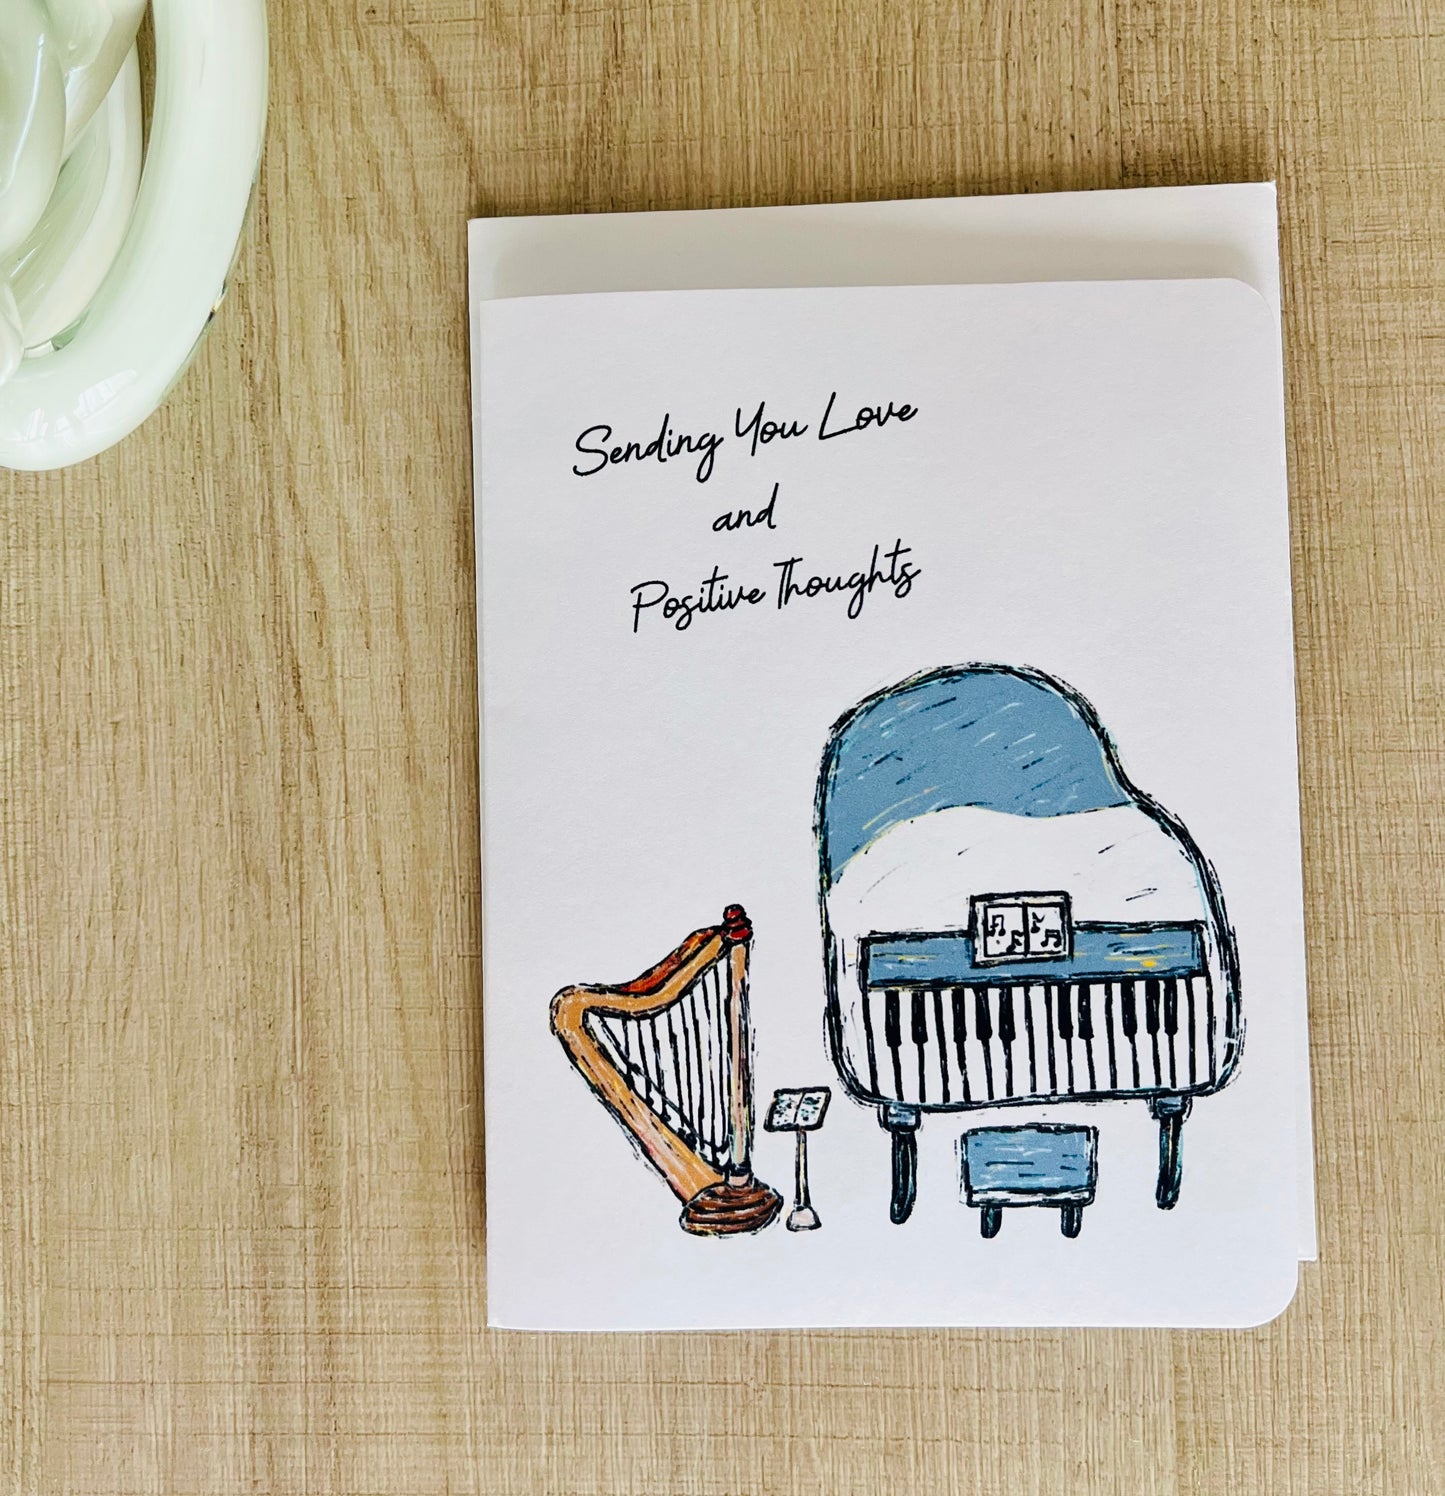 Sending You Love
and
Positive Thoughts